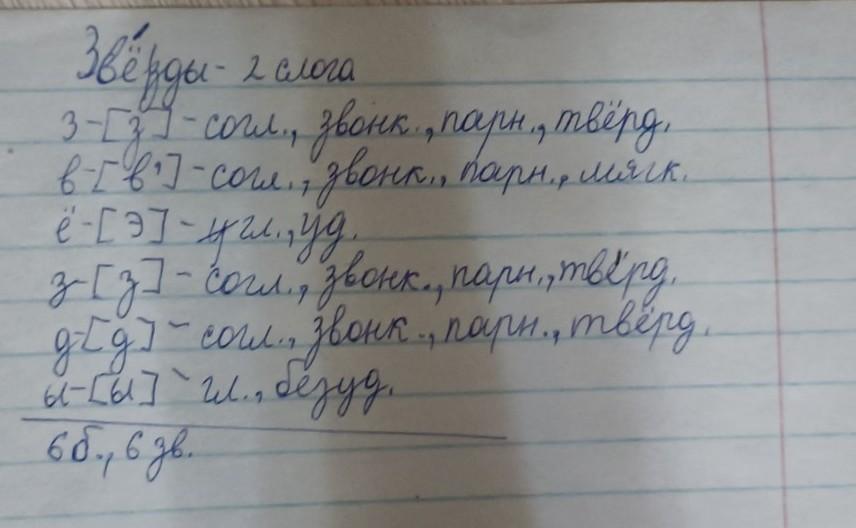 Звёзды - 2 слога
з-[з] - согл., звонк., парн., твёрд.
в-[в'] - согл., звонк., парн., мягк.
ё-[э] - гл., уд.
з-[з] - согл., звонк., парн., твёрд.
д-[д] - согл., звонк., парн., твёрд.
ы-[ы] - гл., безуд.
6 б., 6 зв.